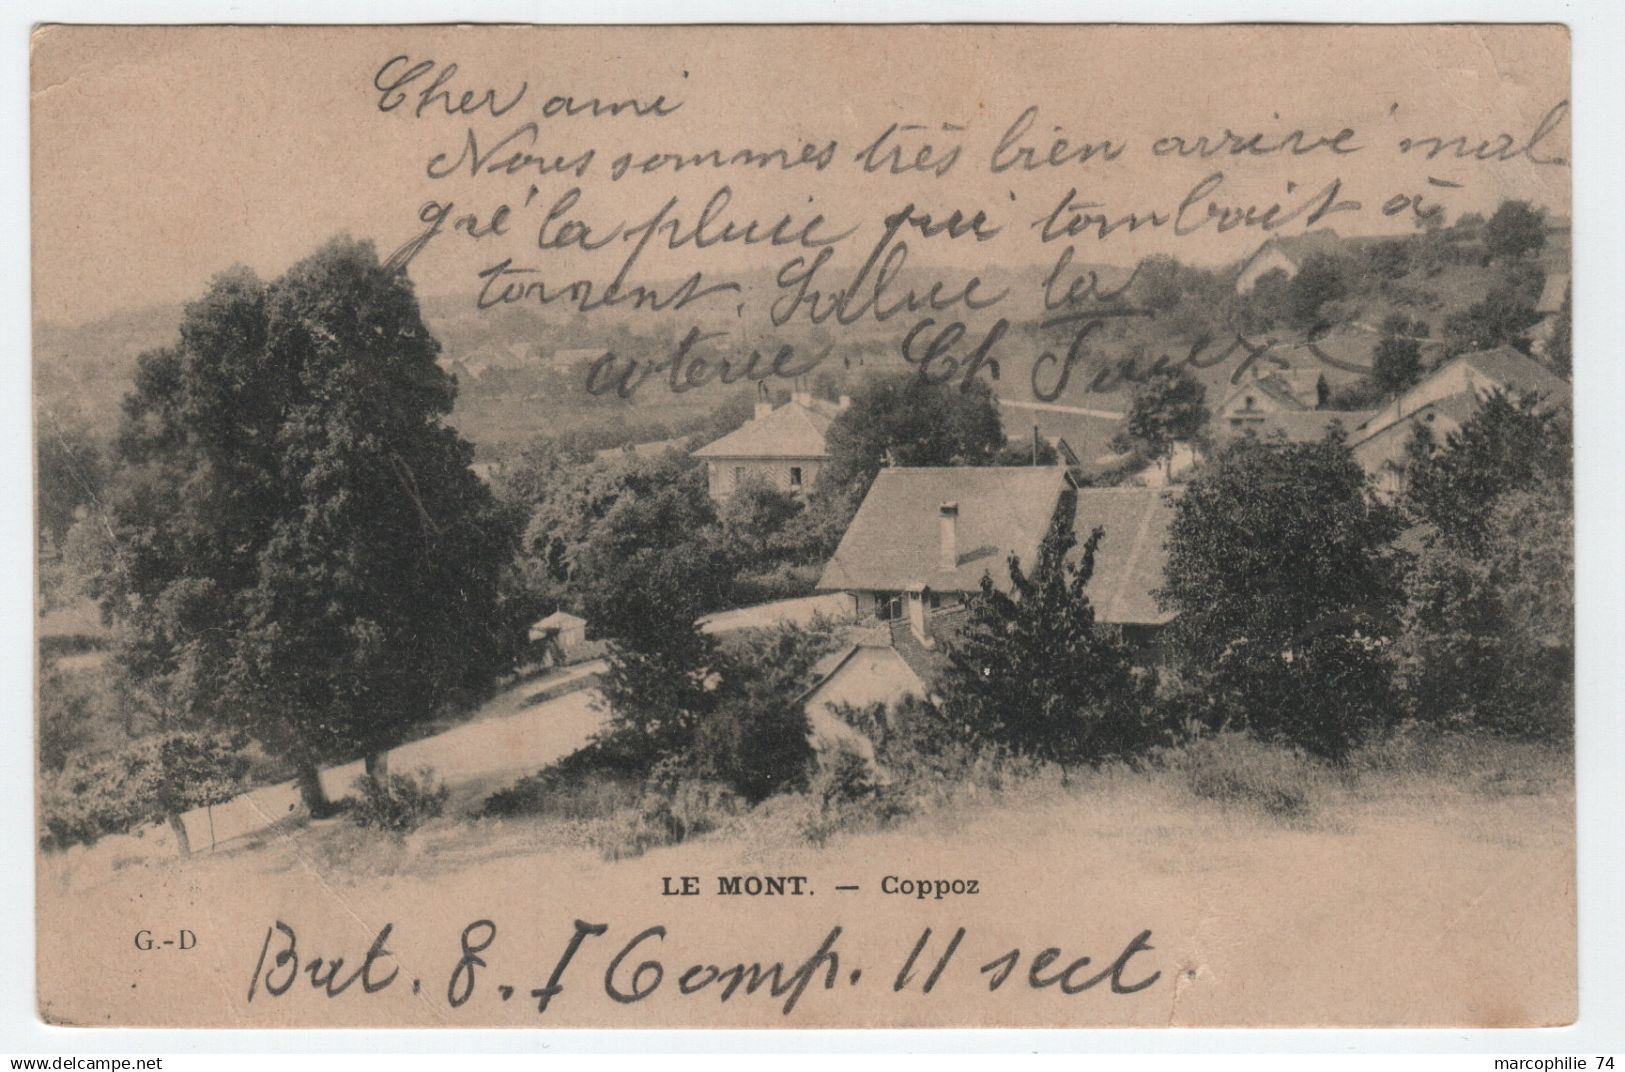 Cher ami
Nous sommes très bien arrivé mal
gré la pluie qui tombait à
torrent. Salue la
coterie. Ch
LE MONT. — Coppoz
G.-D
Bat. 8. I Comp. 11 sect.
marcophilie 74